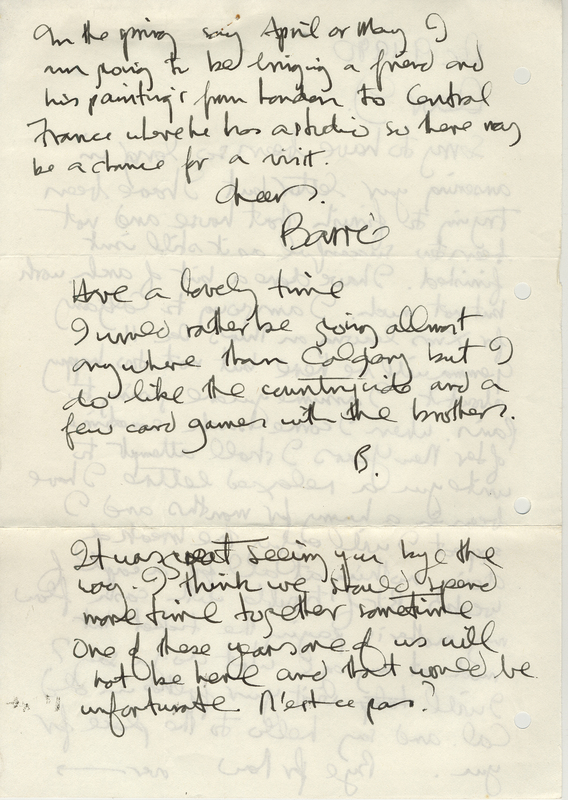 In the spring say April or May I
am going to be bringing a friend and
his painting's from London to Central
France where he has a studio so there may
be a chance for a visit.
Cheers.
Barrie
Have a lovely time
I would rather be going allmost
anywhere than Calgary but I
do like the countryside and a
few card games with the brothers.
B.
It was great seeing you bye the
way. I think we should spend
more time together sometime
One of these years one of us will
not be here and that would be
unfortunate N'est ce pas?